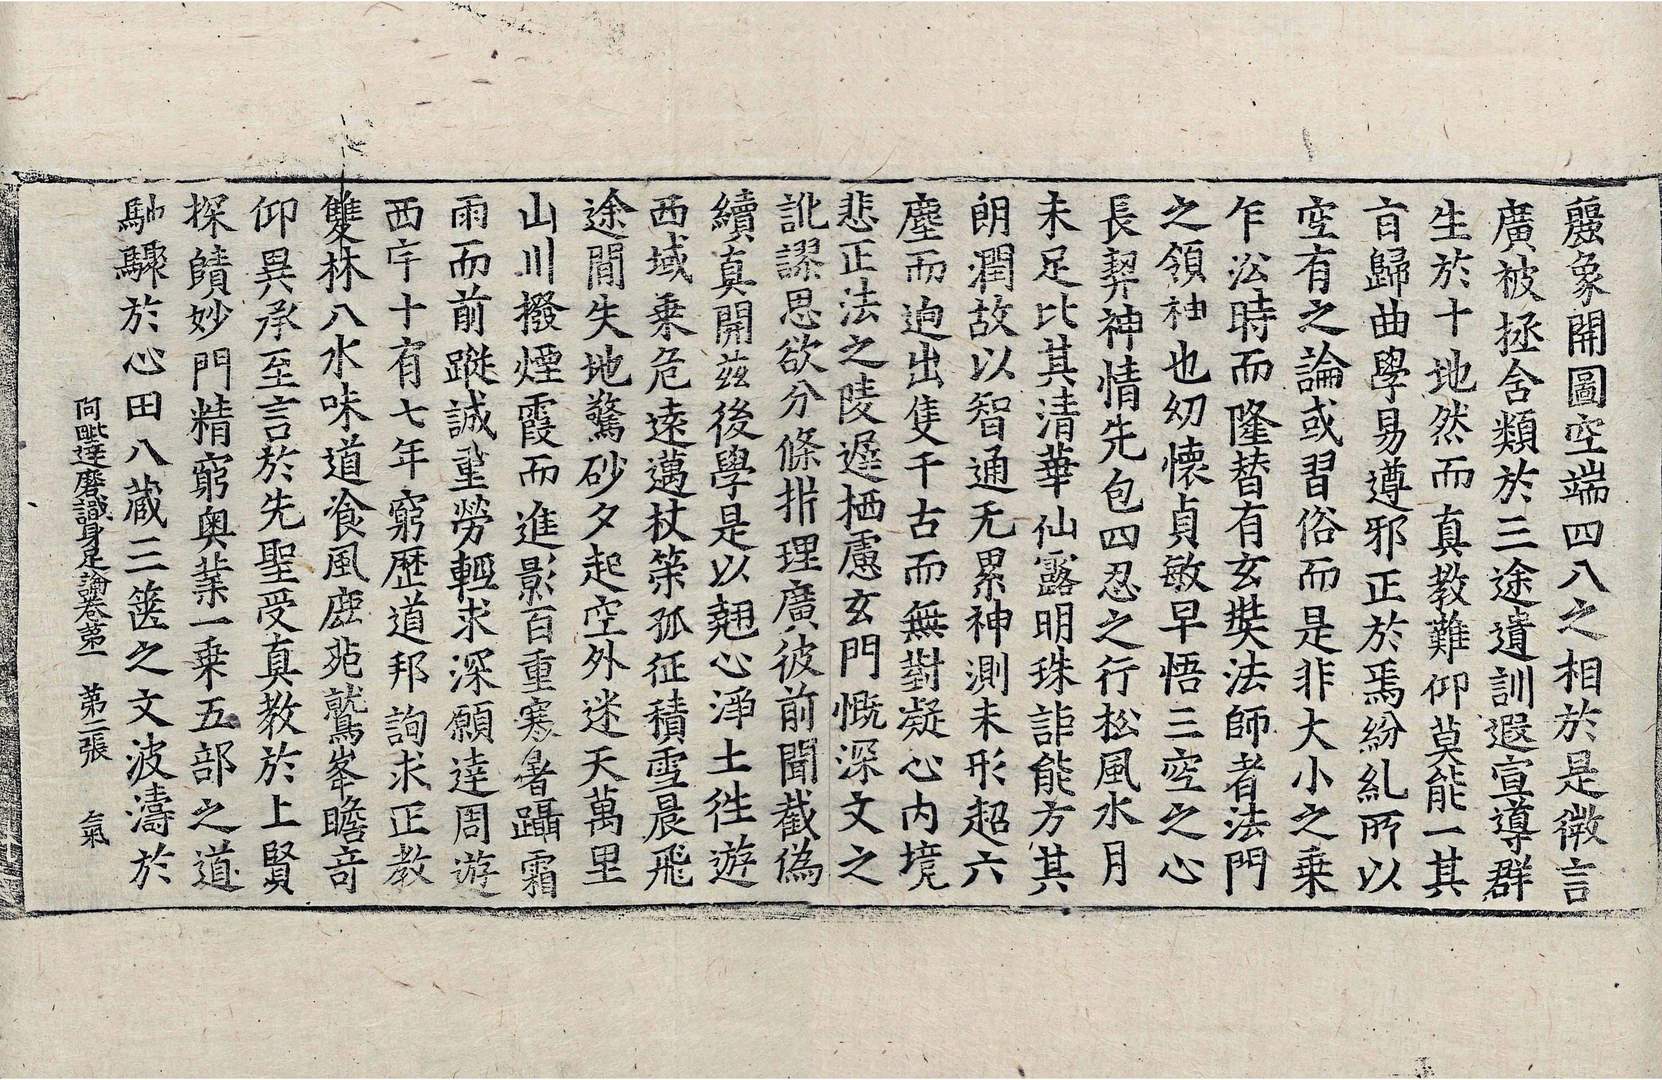 麗象開圖空端四八之相於是微言
廣被拯含類於三途遺訓遐宣導群
生於十地然而真教難仰莫能一其
旨歸曲學易遵邪正於焉紛糺所以
空有之論或習俗而是非大小之乗
乍㳂時而隆替有玄奘法師者法門
之領袖也幼懷貞敏早悟三空之心
長契神情先包四忍之行松風水月
未足比其清華仙露明珠詎能方其
朗潤故以智通无累神測未形超六
塵而逈出隻千古而無對凝心内境
悲正法之陵遲栖慮玄門慨深文之
訛謬思欲分條析理廣彼前聞截偽
續真開茲後學是以翹心淨土往遊
西域乗危遠邁杖策孤征積雪晨飛
途閒失地驚砂夕起空外迷天萬里
山川撥煙霞而進影百重寒暑躡霜
雨而前蹤誠重勞輕求深願達周遊
西宇十有七年窮歷道邦詢求正教
雙林八水味道飡風鹿菀鷲峯瞻奇
仰異承至言於先聖受真教於上賢
探賾妙門精窮奥業一乗五部之道
馳驟於心田八蔵三篋之文波濤於
阿毗達磨識身足論卷第一 第二張 氣